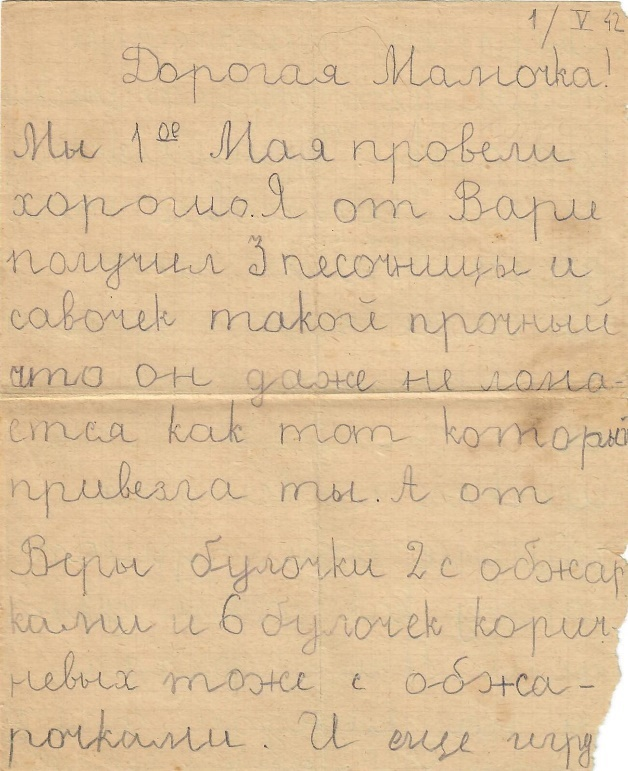 1/V 42
Дорогая Мамочка!
Мы 1ое Мая провели
хорошо. Я от Вари
получил 3 песочницы и
савочек такой прочный
что он даже не лома-
ется как тот который
привезла ты. А от
Веры булочки 2 с обжар
ками и 6 булочек корич-
невых тоже с обжа-
рочками. И еще игру